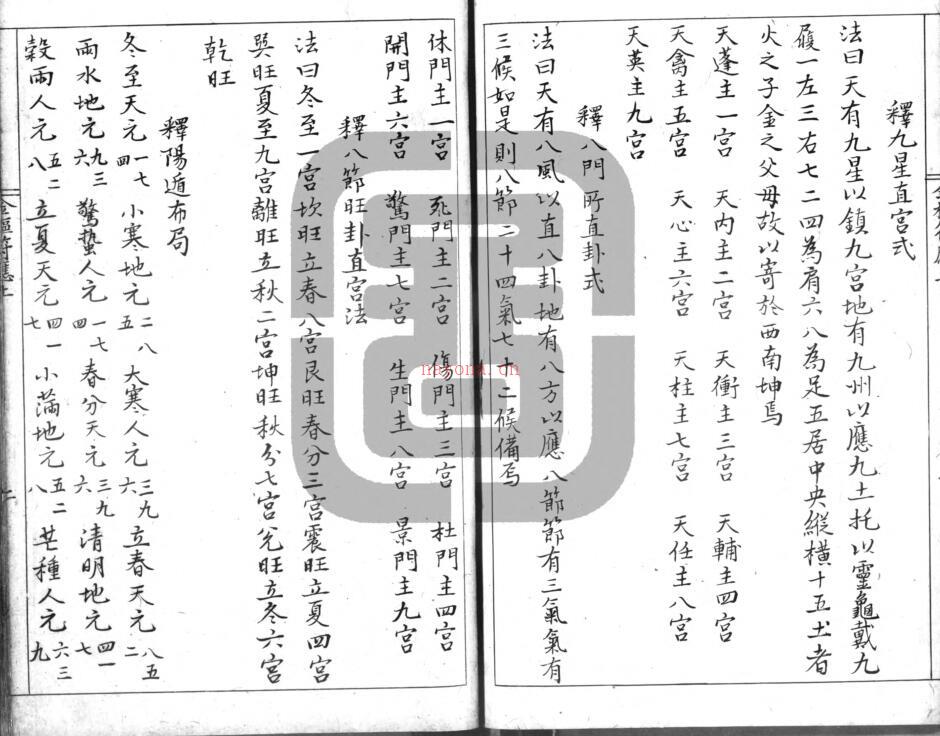 釋九星直宮式
法曰天有九星以鎮九宮地有九州以應九土托以靈龜戴九
履一左三右七二四為肩六八為足五居中央縱橫十五土者
火之子金之父母故以寄於西南坤焉
天蓬主一宮 天內主二宮 天衝主三宮 天輔主四宮
天禽主五宮 天心主六宮 天柱主七宮 天任主八宮
天英主九宮
釋八門所直卦式
法曰天有八風以直八卦地有八方以應八節節有三氣氣有
三候如是則八節二十四氣七十二候備焉
休門主一宮 死門主二宮 傷門主三宮 杜門主四宮
開門主六宮 驚門主七宮 生門主八宮 景門主九宮
釋八節旺卦直宮法
法曰冬至一宮坎旺立春八宮艮旺春分三宮震旺立夏四宮
巽旺夏至九宮離旺立秋二宮坤旺秋分七宮兌旺立冬六宮
乾旺
釋陽遁布局
冬至天元一七四 小寒地元二八五 大寒人元三九六 立春天元八五二
雨水地元九三六 驚蟄人元一七四 春分天元三九六 清明地元四一七
穀雨人元五二八 立夏天元四一七 小滿地元五二八 芒種人元六三九
nayona.cn